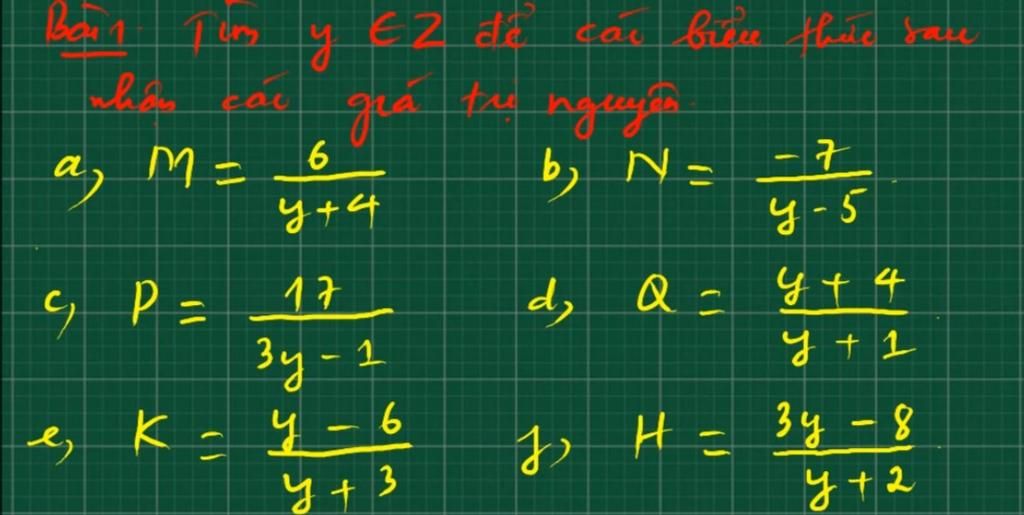 Bài 1 Tìm y ∈ Z để các biểu thức sau
nhận các giá trị nguyên.
a, M = 6/(y + 4) b, N = -7/(y - 5)
c, P = 17/(3y - 1) d, Q = (y + 4)/(y + 1)
e, K = (y - 6)/(y + 3) f, H = (3y - 8)/(y + 2)